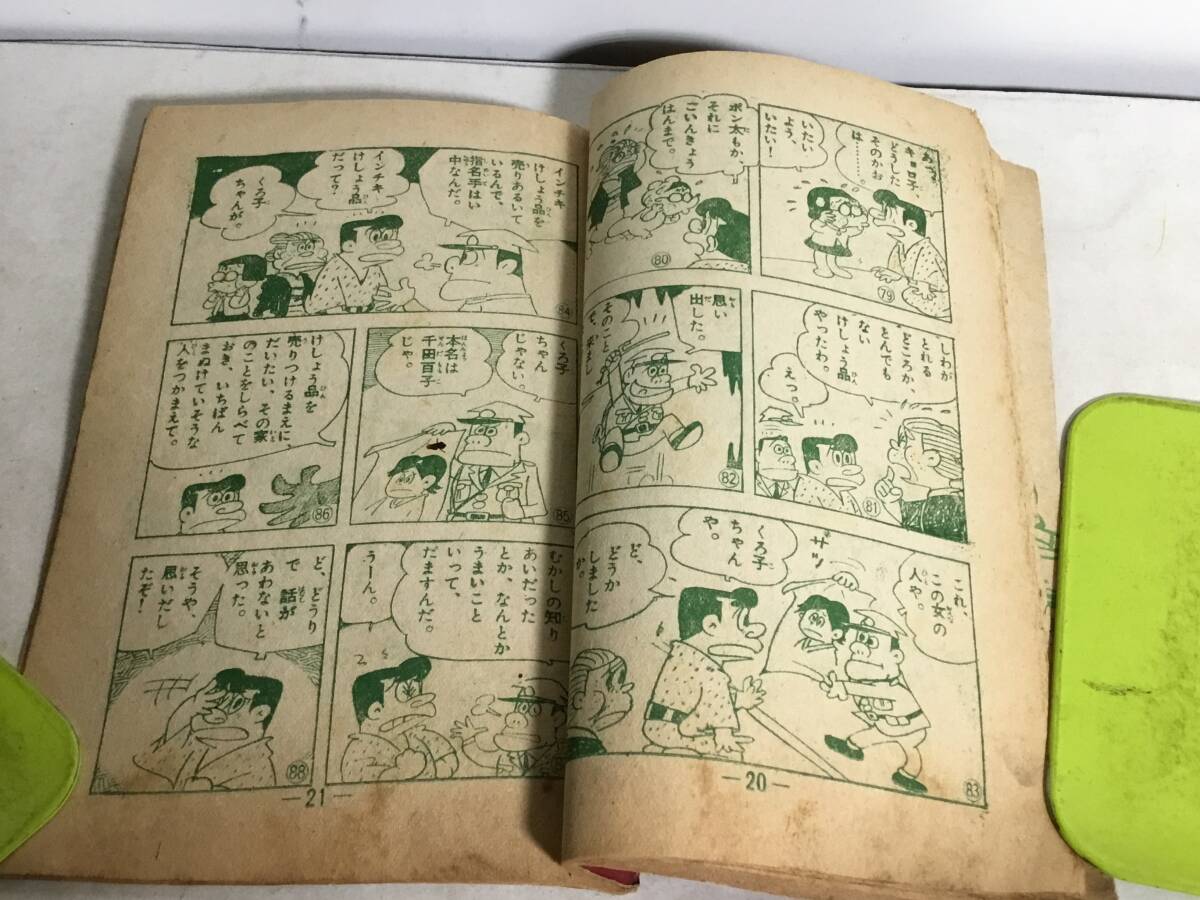 あっ、
キヨ子、
どうした
そのかお
は……。
いたい
よう、
いたい！
79
ポン太もか、
それに
ごいんきょう
はんまで。
80
しわが
とれる
どころか、
とんでも
ない
けしょう品
やったわ。
えっ。
81
思い
出した。
そのことで、
82
これ、
この女の
人や。
サッ
くろ子
ちゃん
や。
ど、
どうか
しました
か。
83
—20—
インチキ
けしょう品を
売りあるいて
いるんで、
指名手はい
中なんだ。
インチキ
けしょう品
だって？
くろ子
ちゃんが。
84
くろ子
ちゃん
じゃない。
本名は
千田百子
じゃ。
85
けしょう品を
売りつけるまえに、
だいたい、その家
のことをしらべて
おき、いちばん
まぬけていそうな
人をつかまえて。
86
むかしの知り
あいだった
とか、なんとか
うまいこと
いって、
だますんだ。
うーん。
ど、どうり
で話が
あわないと
思った。
そうや、
思いだし
たぞ！
88
—21—